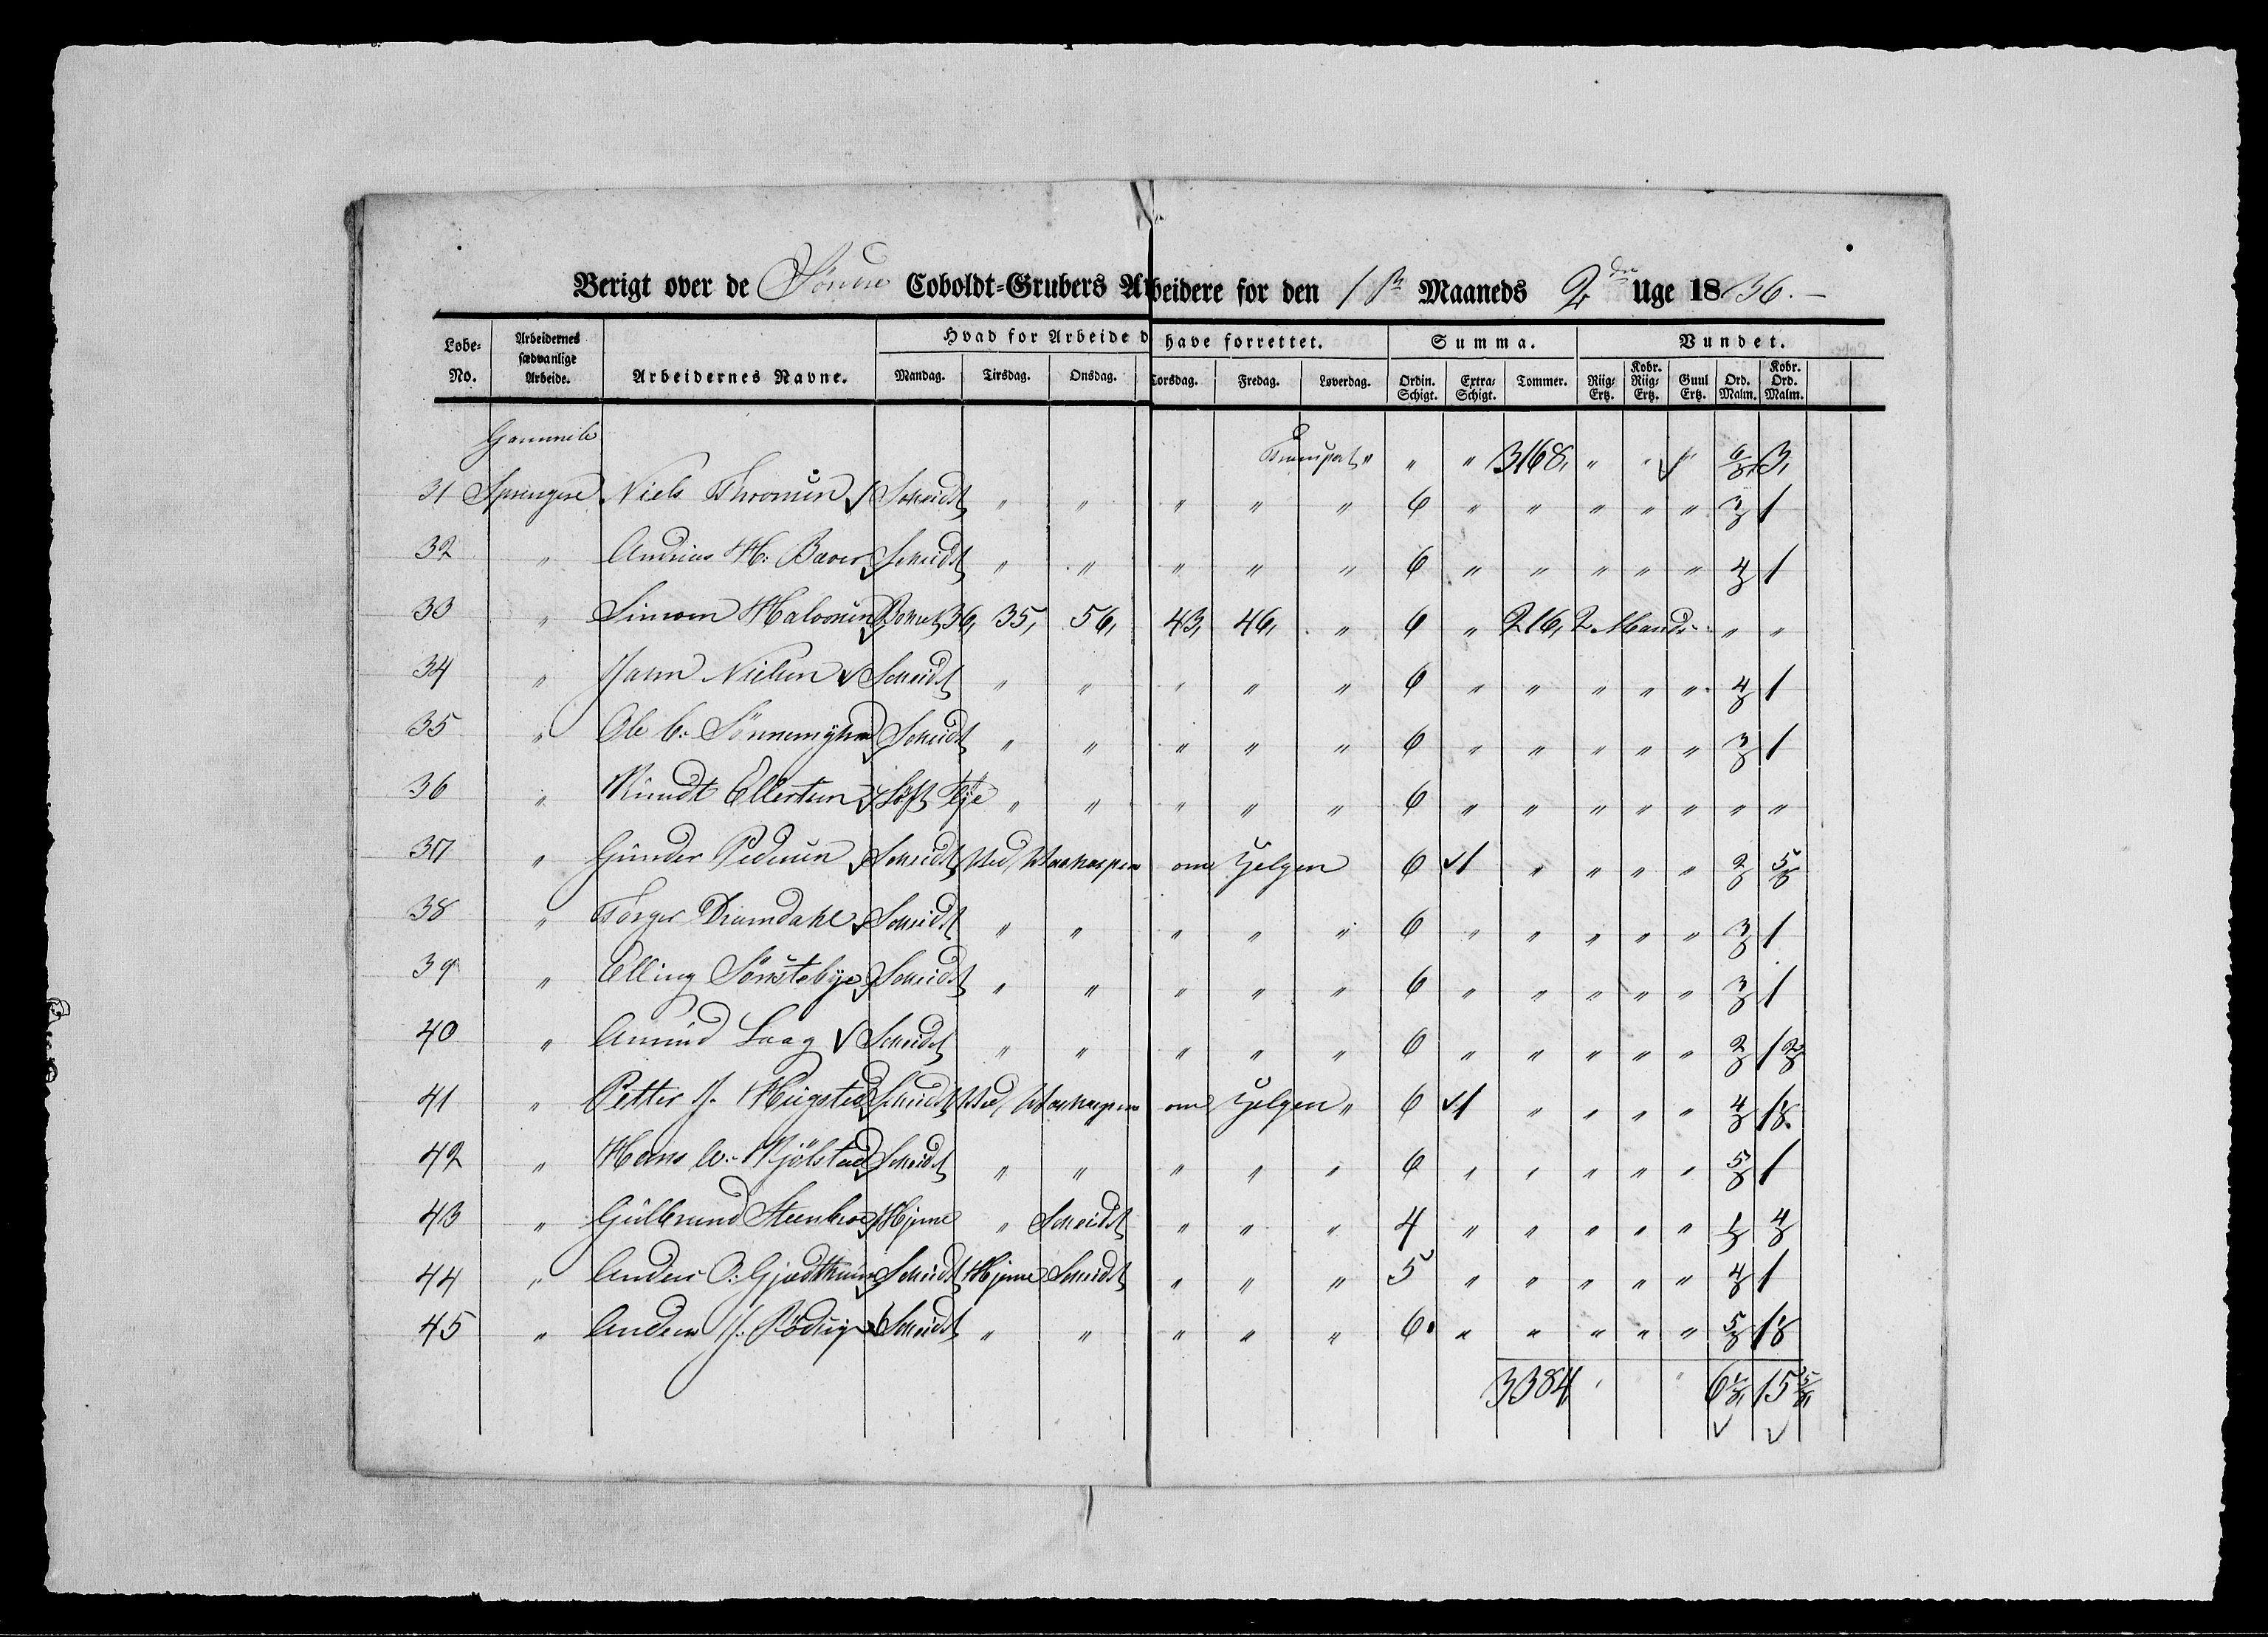 Berigt over de Söndre Coboldt-Grubers Arbeidere for den 1ste Maaneds 2den Uge 1836.
Hvad for Arbeide de have forrettet. Summa. Vundet.
Lobe-No. Arbeidernes sædvanlige Arbeide. Arbeidernes Navne. Mandag. Tirsdag. Onsdag. Torsdag. Fredag. Løverdag. Ordin. Schigt. Extra-Schigt. Tommer. Riig-Ertz. Kobr. Riig-Ertz. Guul Ertz. Ord. Malm. Kobr. Ord. Malm.
Gammile
Transport " " " 3168, " " " 6/8, 3,
31 Springere Niels Thronsen Scheidt " " " " " 6 " " " " " 3/8 1
32 " Andreas H: Baver Scheidt " " " " " 6 " " " " " 4/8 1
33 " Simoen Halvorsen Boret 36, 35, 56, 43, 46, " 6 " 216, 2 Mands " "
34 " Jahn Nielsen Scheidt " " " " " 6 " " " " " 4/8 1
35 " Ole C. Scheidt " " " " " 6 " " " " " 3/8 1
36 " Knudt Ellertsen Løst " " " " " 6 " " " " " " "
37 " Günder Pedersen Scheidt Ved Vaskerpen om 6 1 " " " " 2/8 5/8
38 " Torger Dramdahl Scheidt " " " " " 6 " " " " " 3/8 1
39 " Elling Sönstebye Scheidt " " " " " 6 " " " " " 3/8 1
40 " Amund Laag Scheidt " " " " " 6 " " " " " 2/8 1 2/8
41 " Petter J. Hügsted Scheidt Ved Vaskerpen om " 6 1 " " " " 4/8 1 1/8
42 " Hans Kjölstad Scheidt " " " " " 6 " " " " " 5/8 1
43 " Güllbrand Steenbroe Hjeme " Scheidt " " " 4 " " " " " 1/8 4/8
44 " Anders O: Scheidt Hjeme Scheidt " " " 5 " " " " " 4/8 1
45 " Anders J. Scheidt " " " " " 6 " " " " " 5/8 1 1/8
3384 " " 6 1/8, 15 5/8,